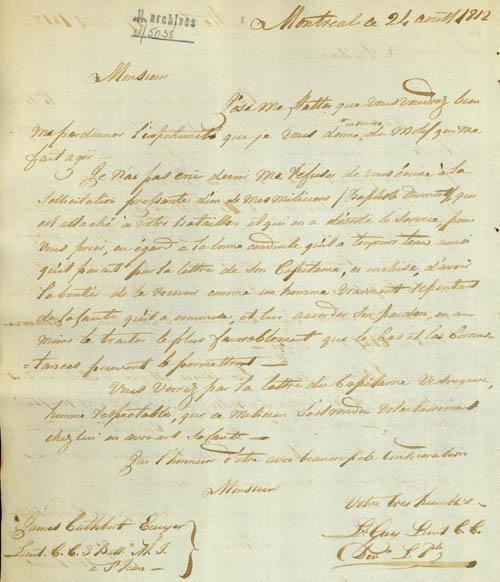 archives
Montreal ce 24 août 1812
Monsieur
J'ose me flatter que vous voudrez bien
me pardonner l'inportunité que je vous donne, du motif qui me
fait agir
Je n'ai pas crû devoir me refuser de vous écrire à la
sollicitation pressante d'un de mes miliciens (Baptiste Dumont) qui
est attaché à votre Bataillon et qui en a déserté le service, pour
vous prier, eu égard à la bonne conduite qu'il a toujours tenu ainsi
qu'il parait par la lettre de son Capitaine, d'avoir
la bonté de le recevoir comme un homme vraiment repentant
de la faute qu'il a commise, et lui accorder son pardon, ou au
moins le traiter le plus favorablement que le Cas et les Circons
=tances peuvent le permettront —
Vous verrez par la lettre du Capitaine
homme respectable, que ce milicien s'est rendu volontairement
chez lui en avouant sa faute —
J'ai l'honneur d'être avec beaucoup de Considération
Monsieur
Votre tres humble
James Cuthbert Ecuyer
Lieut. C. C. 3 Batt. M. I.
à St Jean
Ls Guy Lieut C. C.